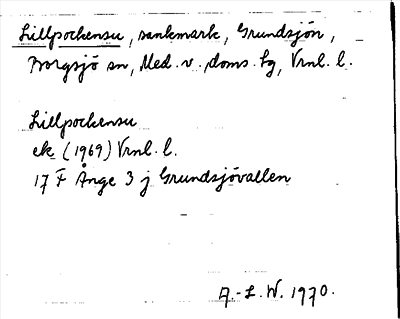 Lillpockensu, sankmark, Grundsjön,
Borgsjö sn, Med. v. doms. tg, Vrnl. l.
Lillpockensu
ek (1969) Vrnl. l.
17 F Ånge 3 j Grundsjövallen
A.-L. W. 1970.